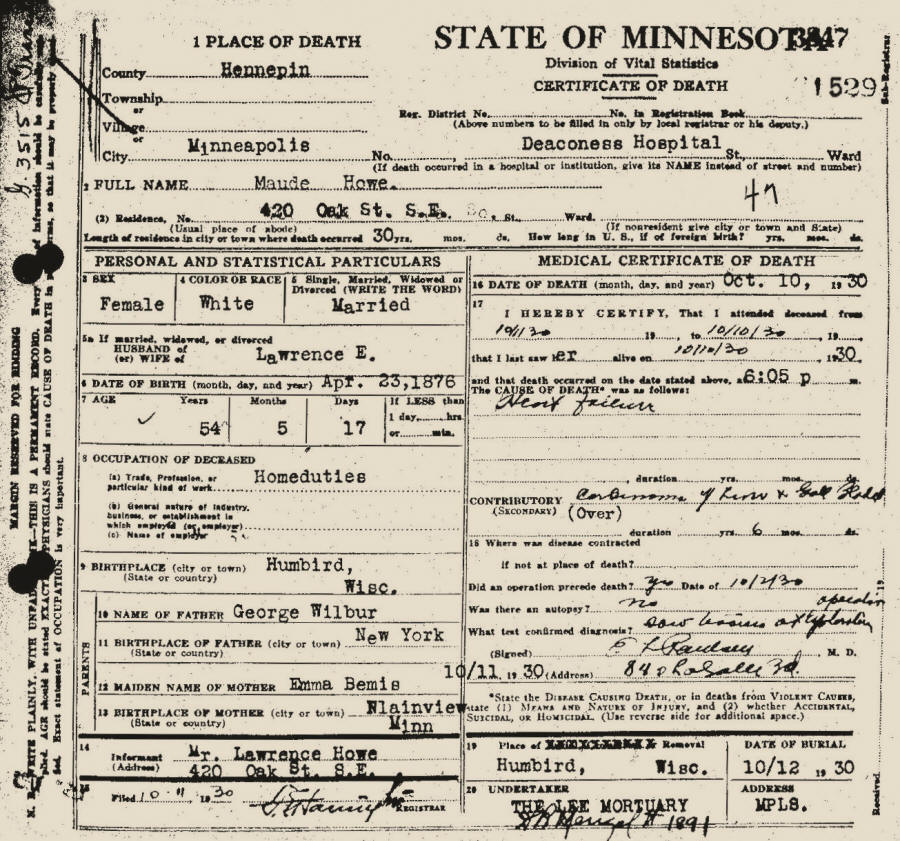 STATE OF MINNESOTA 3847
Division of Vital Statistics
CERTIFICATE OF DEATH
1529
Sub-Registrar
1 PLACE OF DEATH
County Hennepin
Township
or
Village
or
City Minneapolis
Reg. District No. No. in Registration Book
(Above numbers to be filled in only by local registrar or his deputy.)
No. , Deaconess Hospital St., Ward
(If death occurred in a hospital or institution, give its NAME instead of street and number)
2 FULL NAME Maude Howe.
47
(2) Residence, No. 420 Oak St. S.E. St., Ward.
(Usual place of abode) (If nonresident give city or town and State)
Length of residence in city or town where death occurred 30 yrs. mos. ds. How long in U. S., if of foreign birth? yrs. mos. ds.
PERSONAL AND STATISTICAL PARTICULARS
3 SEX
Female
4 COLOR OR RACE
White
5 Single, Married, Widowed or
Divorced (WRITE THE WORD)
Married
5a If married, widowed, or divorced
HUSBAND of
(or) WIFE of Lawrence E.
6 DATE OF BIRTH (month, day, and year) Apr. 23,1876
7 AGE Years Months Days If LESS than
1 day, hrs
54 5 17 or min.
8 OCCUPATION OF DECEASED
(a) Trade, Profession, or
particular kind of work Homeduties
(b) General nature of industry,
business, or establishment in
which employed (or employer)
(c) Name of employer
9 BIRTHPLACE (city or town) Humbird,
(State or country) Wisc.
PARENTS
10 NAME OF FATHER George Wilbur
11 BIRTHPLACE OF FATHER (city or town) New York
(State or country)
12 MAIDEN NAME OF MOTHER Emma Bemis
13 BIRTHPLACE OF MOTHER (city or town) Plainview
(State or country) Minn
14
Informant Mr. Lawrence Howe
(Address) 420 Oak St. S.E.
15
Filed 10 11 , 19 30 REGISTRAR
MEDICAL CERTIFICATE OF DEATH
16 DATE OF DEATH (month, day, and year) Oct. 10, 19 30
17
I HEREBY CERTIFY, That I attended deceased from
10/1/30 19 , to 10/10/30
that I last saw her alive on 10/10/30 , 19 30,
and that death occurred on the date stated above, at 6:05 p m.
The CAUSE OF DEATH* was as follows:
Heart failure
, duration yrs. mos. ds.
CONTRIBUTORY Carcinoma of Liver & Gall Bladd
(SECONDARY) (Over)
duration yrs. 6 mos. ds.
18 Where was disease contracted
if not at place of death?
Did an operation precede death? yes Date of 10/2/30
Was there an autopsy? no operation
What test confirmed diagnosis? saw tissues at exploratory
(Signed) M. D.
10/11 , 19 30 (Address)
*State the DISEASE CAUSING DEATH, or in deaths from VIOLENT CAUSES,
state (1) MEANS AND NATURE OF INJURY, and (2) whether ACCIDENTAL,
SUICIDAL, OR HOMICIDAL. (Use reverse side for additional space.)
19 Place of Removal
Humbird, Wisc.
DATE OF BURIAL
10/12 19 30
20 UNDERTAKER
THE LEE MORTUARY
1891
ADDRESS
MPLS.
Received 19
MARGIN RESERVED FOR BINDING